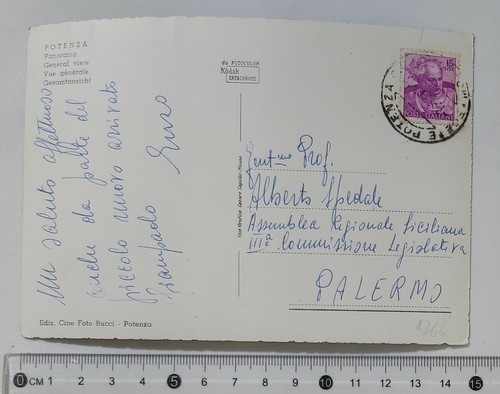 POTENZA
Panorama
General view
Vue générale
Gesamtansicht
da FOTOCOLOR
Kodak
EKTACHROME
15
POSTE ITALIANE
POTENZA
Un saluto affettuoso
anche da parte del
piccolo nuovo arrivato
Giampaolo
Enzo
Gent.mo Prof.
Alberto Spedale
Assemblea Regionale Siciliana
IIIª Commissione Legislativa
PALERMO
1364
Ediz. Cine Foto Bucci - Potenza
0 CM 1 2 3 4 5 6 7 8 9 10 11 12 13 14 15